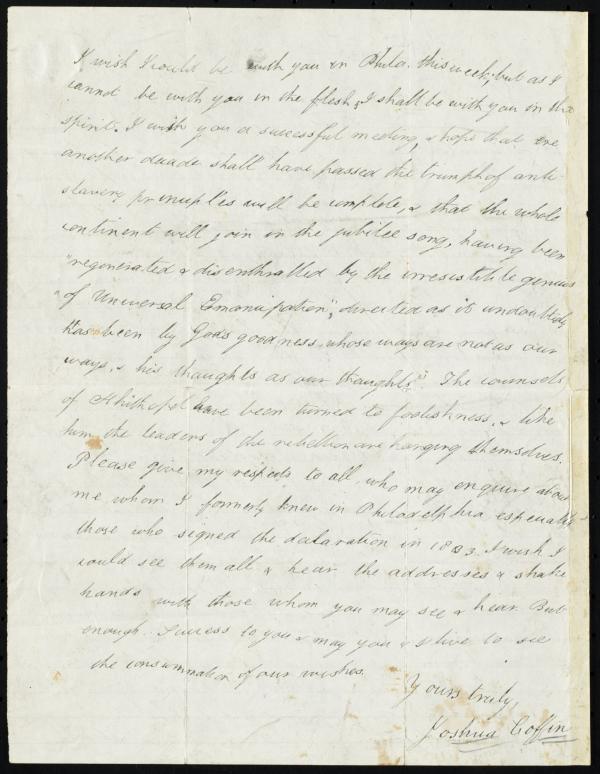 I wish I could be with you in Phila. this week, but as I
cannot be with you in the flesh, I shall be with you in the
spirit. I wish you a successful meeting, & hope that ere
another decade shall have passed the triumph of anti-
slavery principles will be complete, & that the whole
continent will join in the jubilee song, having been
"regenerated & disenthralled by the irresistible genius
of Universal Emancipation", directed as it undoubtedly
has been by God's goodness, whose ways are not as our
ways, & his thoughts as our thoughts". The counsels
of Ahithophel have been turned to foolishness, & like
him, the leaders of the rebellion are hanging themselves.
Please give my respects to all, who may enquire about
me whom I formerly knew in Philadelphia especially
those who signed the declaration in 1833. I wish I
could see them all & hear the addresses & shake
hands with those whom you may see & hear. But
enough. Success to you & may you & I live to see
the consummation of our wishes.
Yours truly,
Joshua Coffin